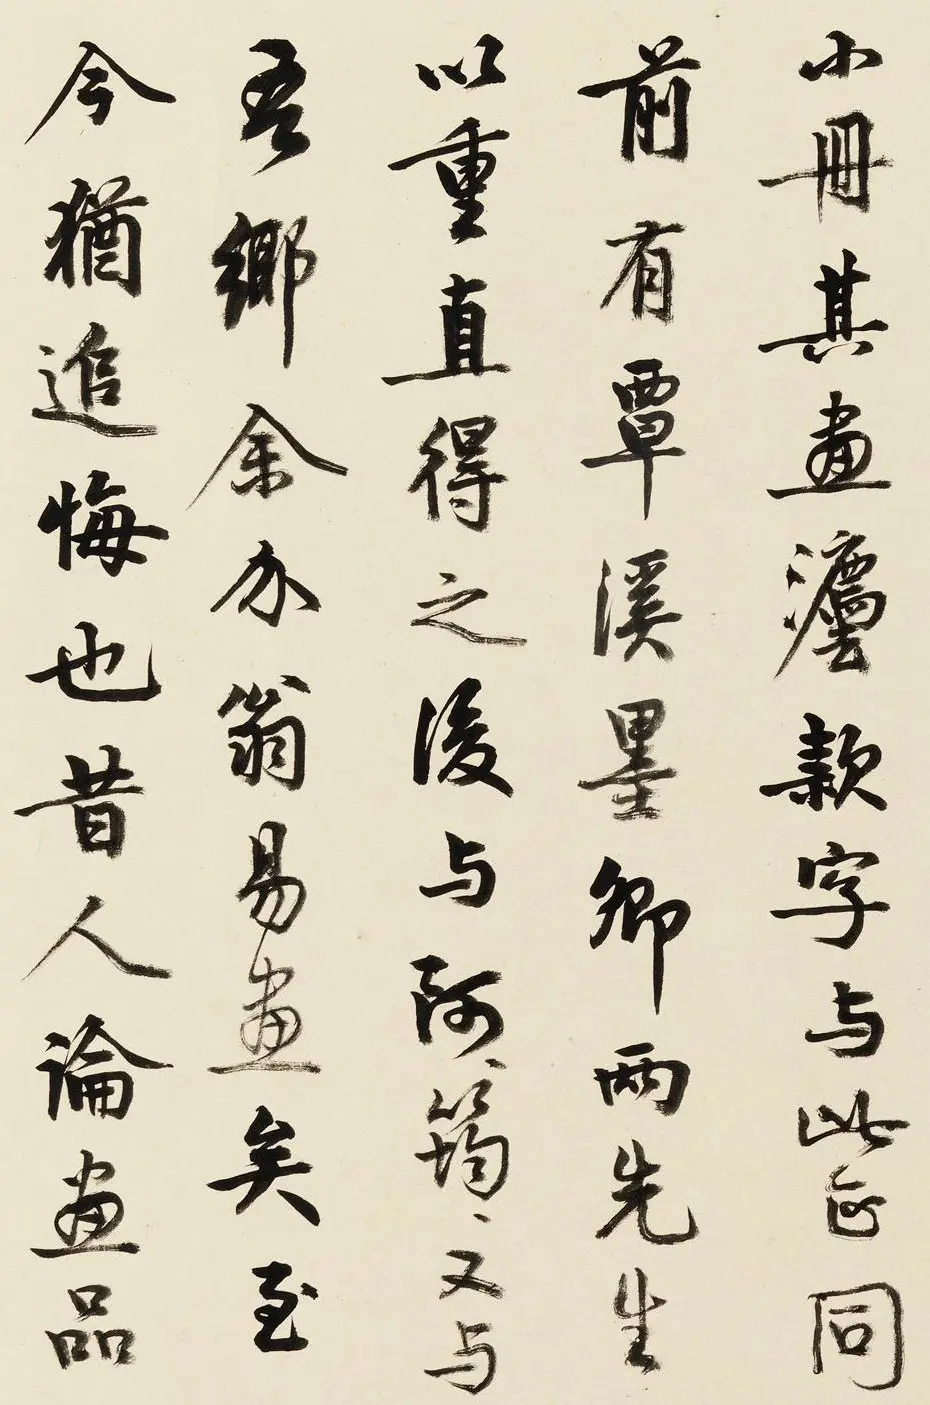 小冊其畫法款字与此正同
前有覃溪墨卿兩先生
以重直得之後与阿筠筠又与
吾鄉余小翁易畫矣至
今猶追悔也昔人論畫品